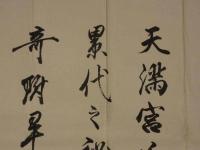 天満宮
累代之
奇附畢